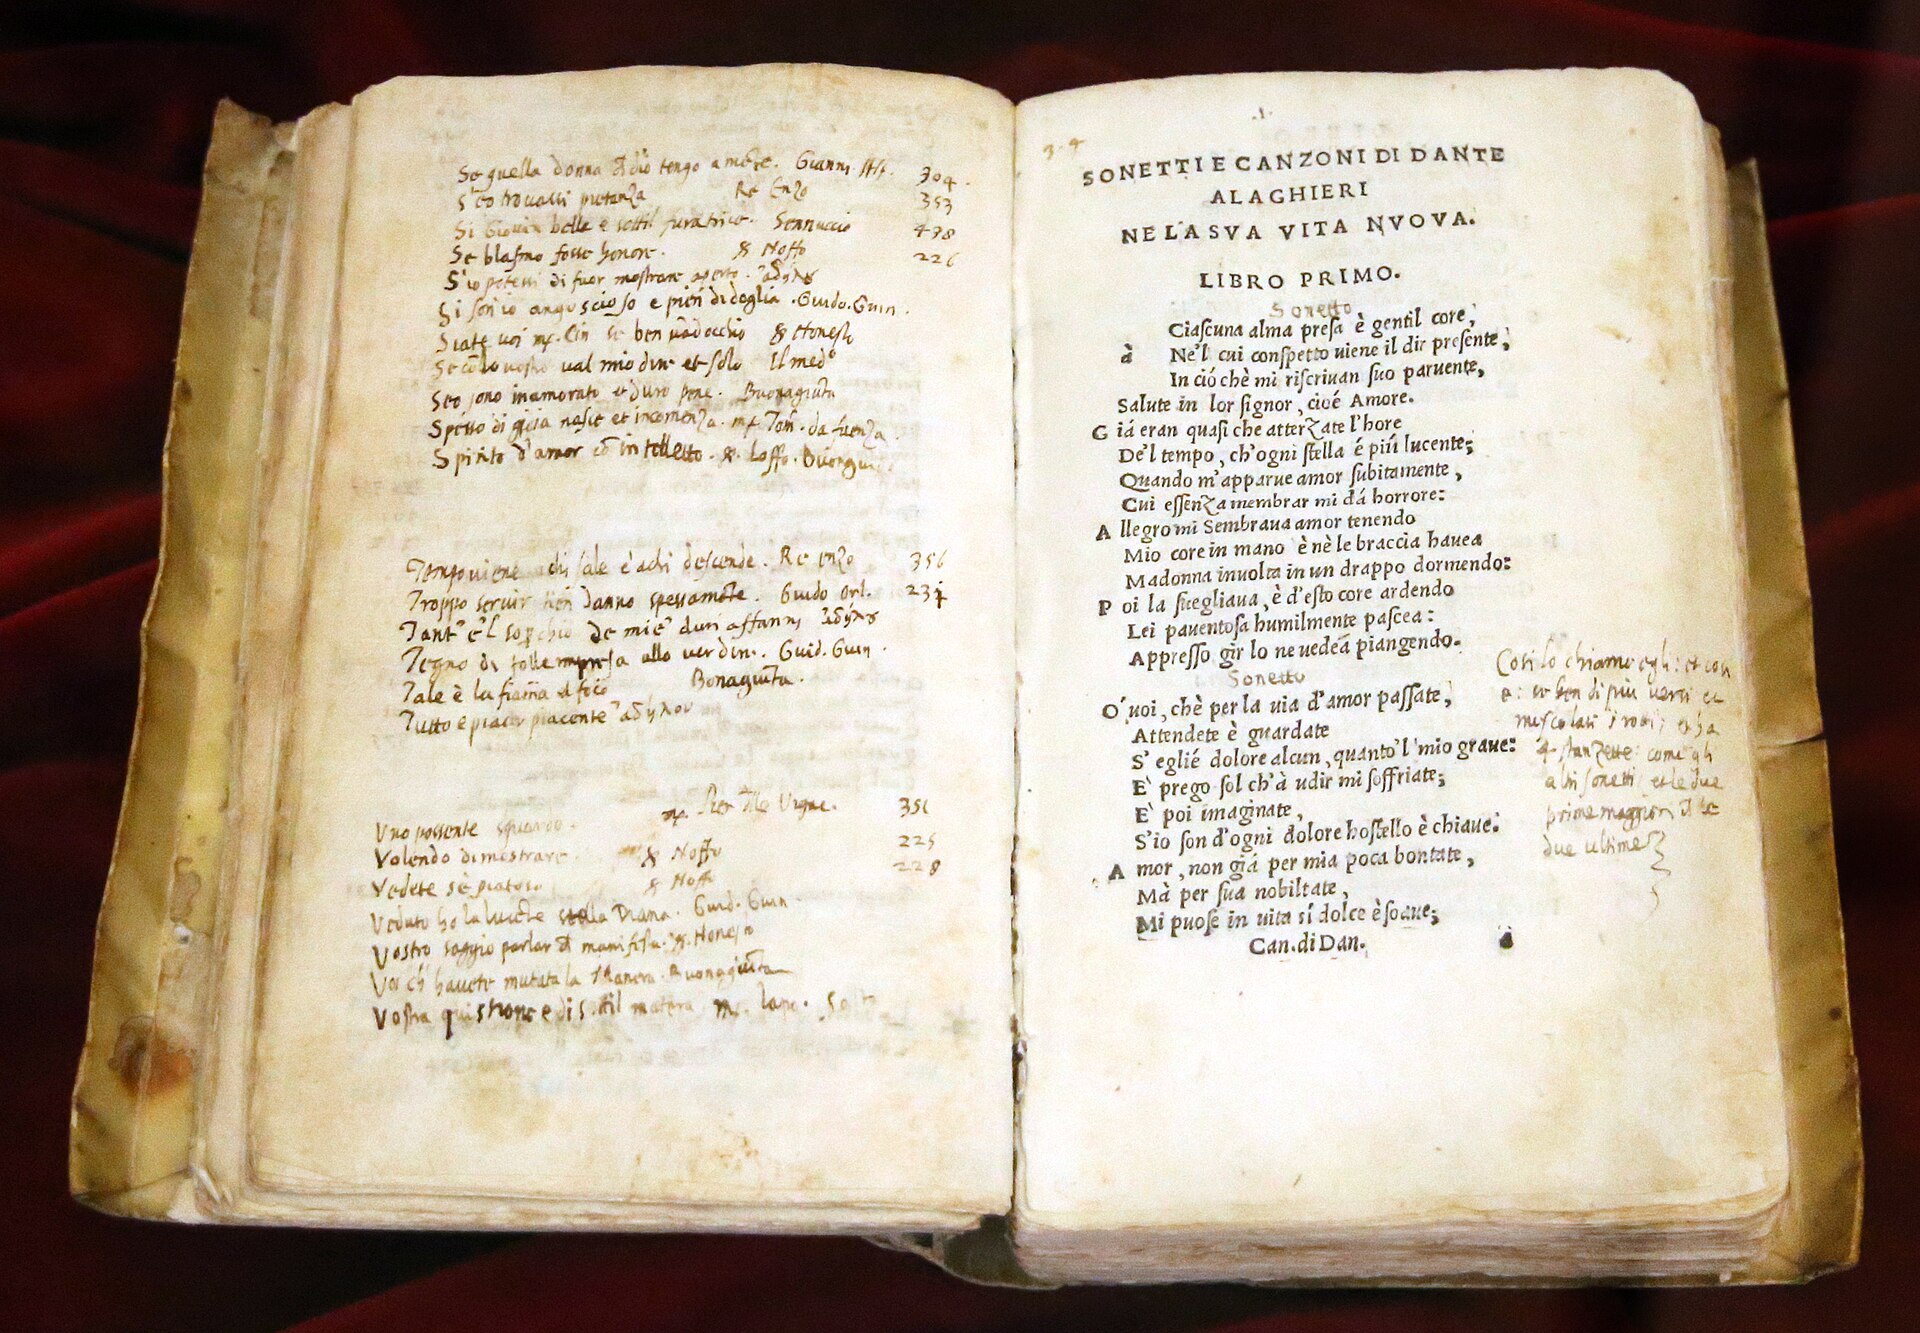 Se quella donna
S'eo trovassi pietanza Re Enzo 353
Si Giovin bella e sottil furatrice. Sennuccio 438
Se blasmo fosse honore. & Noffo 226
S'io potessi di fuor mostrare aperto. ἄδηλου
Si son io angoscioso e pien di doglia. Guido. Guin.
Siate voi se ben & Honesto
val mio dire et solo Il med°
Seo sono inamorato et duro pene. Buonagiũta
Spesso di gioia nasce et incomenza. da faenza.
Spirito d'amor cō intelletto. &. Loffo.
Tempo viene chi sale è achi descende. Re enzo 356
Troppo servir tien danno spessamẽte. Guido Orl. 234
de miei duri affanni ἄδηλου
Tegno di folle mpresa allo ver dire. Guid. Guin.
Tale è la fiama el foco Bonagiũta.
Tutto e piacer piacente ἄδηλου
Uno possente sguardo. Pier 351
Volendo dimostrare & Noffo 225
Vedete s'è piatoso & Noffo 228
Veduto ho la lucẽte stella Diana. Guid. Guin.
Vostro saggio parlar &. Honesto
Voi ch' havete mutata la Manera. Buonagiũta
Vostra quistione e di sottil matera
SONETTI E CANZONI DI DANTE
ALAGHIERI
NE LA SVA VITA NVOVA.
LIBRO PRIMO.
Sonetto
Ciaſcuna alma preſa è gentil core,
à Ne'l cui conſpetto uiene il dir preſente,
In ció chè mi riſcriuan ſuo paruente,
Salute in lor ſignor, cioé Amore.
G iá eran quaſi che atterzate l'hore
De'l tempo, ch'ogni ſtella é piú lucente;
Quando m'apparue amor ſubitamente,
Cui eſſenza membrar mi dá horrore:
A llegro mi Sembraua amor tenendo
Mio core in mano è nè le braccia hauea
Madonna inuolta in un drappo dormendo:
P oi la ſuegliaua, è d'eſto core ardendo
Lei pauentoſa humilmente paſcea:
Appreſſo gir lo ne uedeá piangendo.
Sonetto
O' uoi, chè per la uia d'amor paſſate,
Attendete è guardate
S' eglié dolore alcun, quanto'l mio graue:
E' prego ſol ch'à udir mi ſoffriate;
E' poi imaginate,
S'io ſon d'ogni dolore hoſtello è chiaue:
A mor, non giá per mia poca bontate,
Mà per ſua nobiltate,
Mi puoſe in uita sí dolce è ſoaue;
Can. di Dan. a
Cosi lo chiama egli: et con
se ben di piu versi et
4. stanzette come gli
altri sonetti et le due
prime maggiori
due ultime